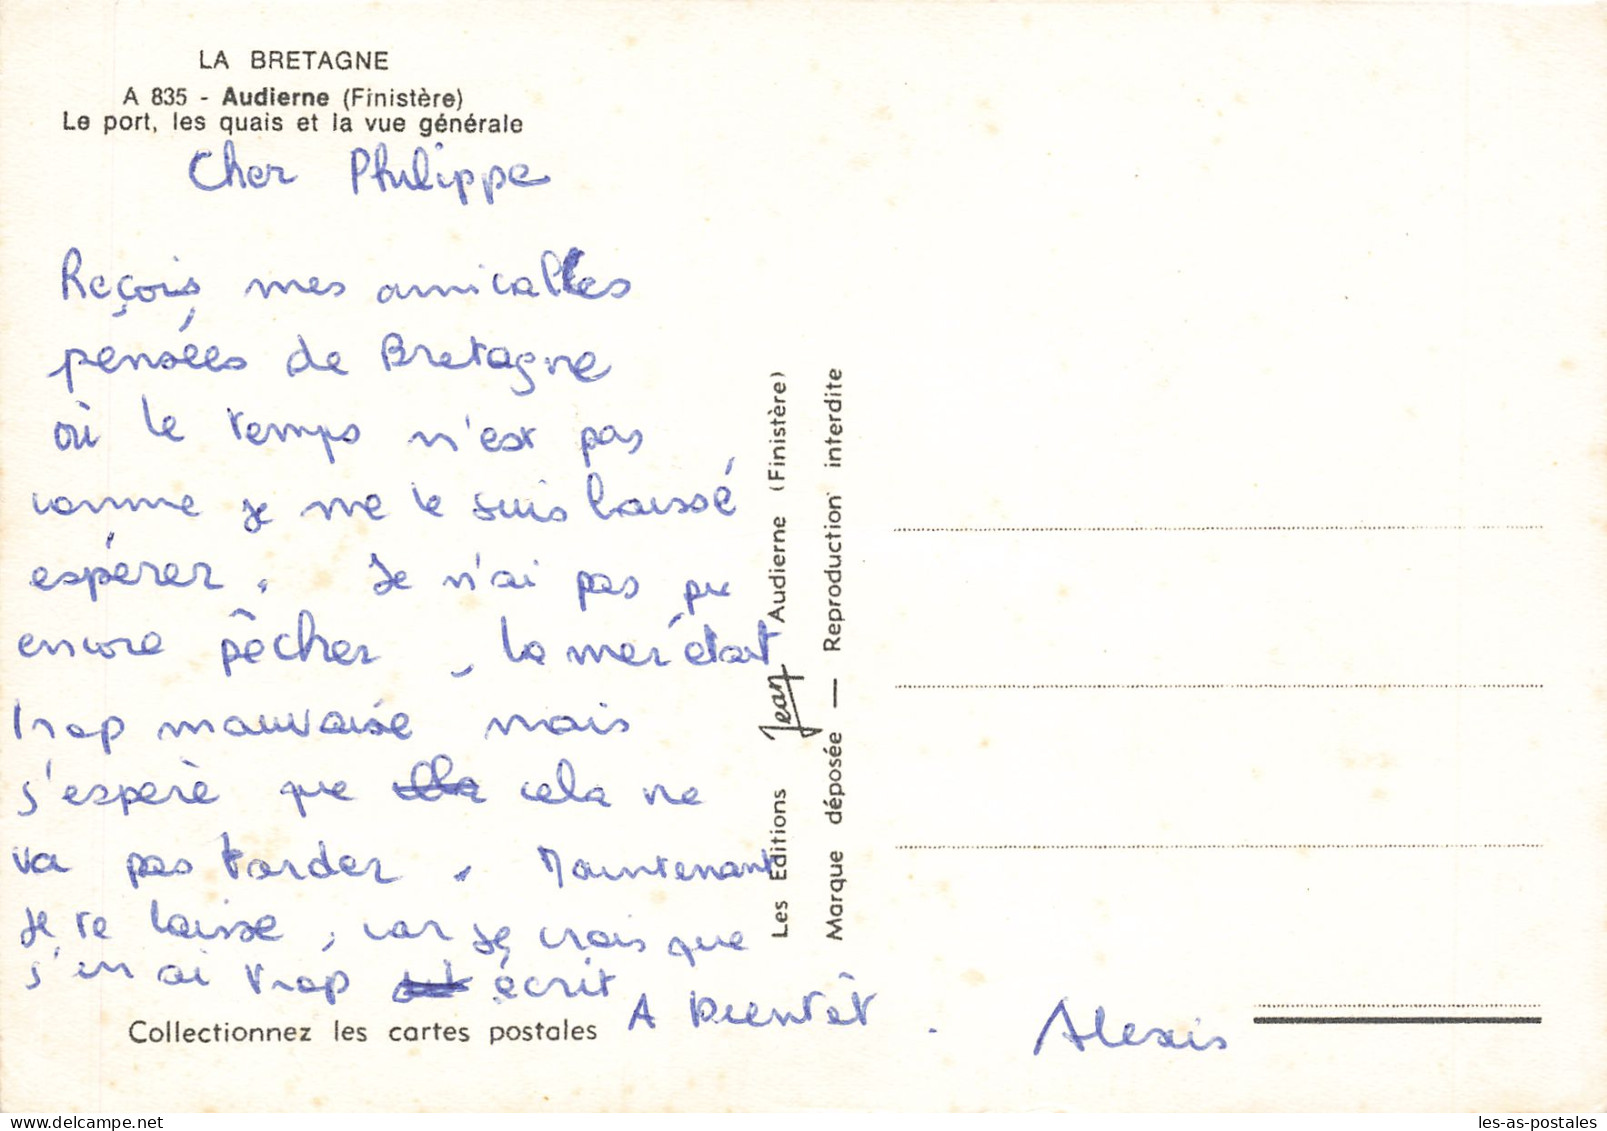 LA BRETAGNE
A 835 - Audierne (Finistère)
Le port, les quais et la vue générale
Cher Philippe
Reçois mes amicales
pensées de Bretagne
où le temps n'est pas
comme je me le suis laissé
espérer. Je n'ai pas pu
encore pêcher, la mer était
trop mauvaise mais
j'espère que cela ne
va pas tarder. Maintenant
je te laisse, car je crois que
j'en ai trop écrit
A bientôt.
Alexis
Collectionnez les cartes postales
Les Editions Jean Audierne (Finistère)
Marque déposée — Reproduction interdite
les-as-postales